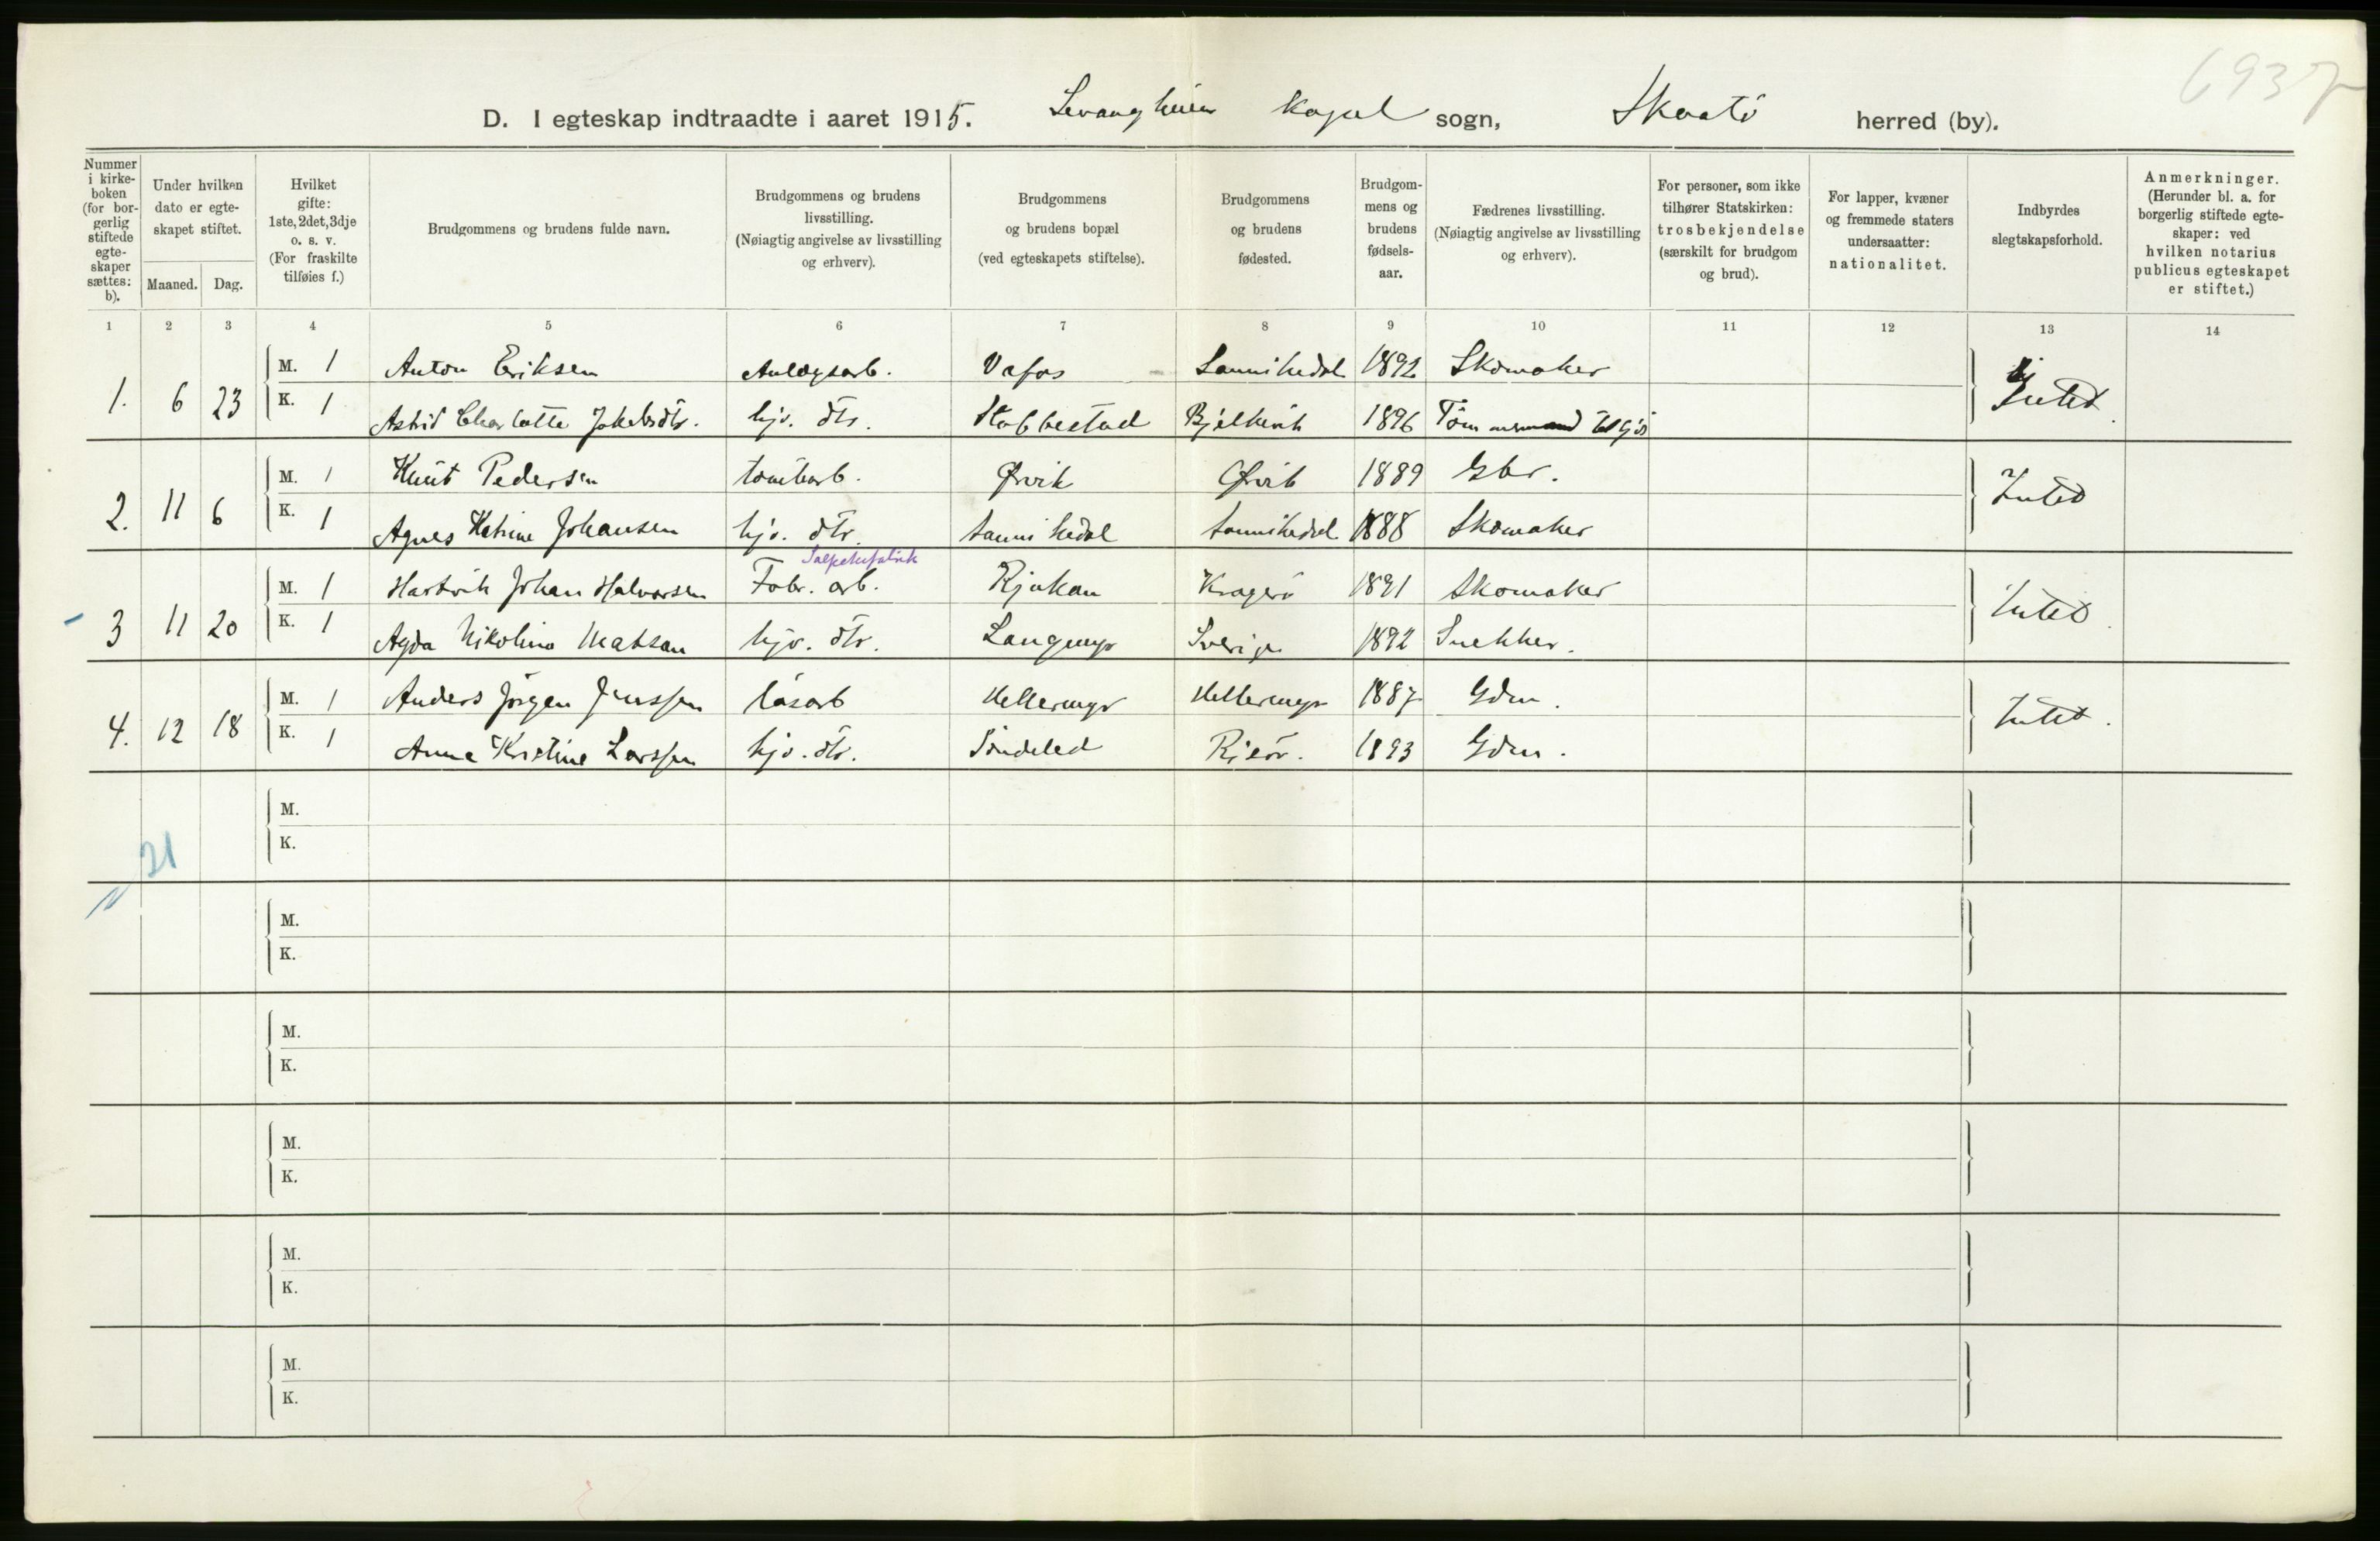 6937
D. I egteskap indtraadte i aaret 1915. Levangheiens Kapel sogn, Skaatö herred (by).
Nummer i kirke-boken (for bor-gerlig stiftede egte-skaper sættes: b).
Under hvilken dato er egte-skapet stiftet.
Maaned. Dag.
Hvilket gifte: 1ste, 2det, 3dje o. s. v. (For fraskilte tilføies f.)
Brudgommens og brudens fulde navn.
Brudgommens og brudens livsstilling. (Nøiagtig angivelse av livsstilling og erhverv).
Brudgommens og brudens bopæl (ved egteskapets stiftelse).
Brudgommens og brudens fødested.
Brudgom-mens og brudens fødsels-aar.
Fædrenes livsstilling. (Nøiagtig angivelse av livsstilling og erhverv).
For personer, som ikke tilhører Statskirken: trosbekjendelse (særskilt for brudgom og brud).
For lapper, kvæner og fremmede staters undersaatter: nationalitet.
Indbyrdes slegtskapsforhold.
Anmerkninger. (Herunder bl. a. for borgerlig stiftede egte-skaper: ved hvilken notarius publicus egteskapet er stiftet.)
1 2 3 4 5 6 7 8 9 10 11 12 13 14
1. 6 23 M. 1 Anton Eriksen Anlægsarb. Vafos Sannikedal 1892 Skomaker Intet
K. 1 Astrid Charlotte Jakobsdtr. hjv. dtr. Stabbestad Bjelkevik 1896 Tömmermand
2. 11 6 M. 1 Knut Pedersen tomtearb. Ørvik Ørvik 1889 Gbr. Intet
K. 1 Agnes Katrine Johansen hjv. dtr. Sannikedal Sannikedal 1888 Skomaker
Salpeterfabrik
3 11 20 M. 1 Hartvik Johan Halvorsen Fabr. arb. Rjukan Kragerö 1891 Skomaker Intet
K. 1 Agda Nikolina Matsan hjv. dtr. Langmyr Sverige 1892 Snekker.
4. 12 18 M. 1 Anders Jörgen Jenssen lösarb Hellermyr Hellermyr 1887 Gdm. Intet.
K. 1 Anne Kristine Larssen hjv. dtr. Söndeled Risör. 1893 Gdm.
M.
K.
21
M.
K.
M.
K.
M.
K.
M.
K.
M.
K.